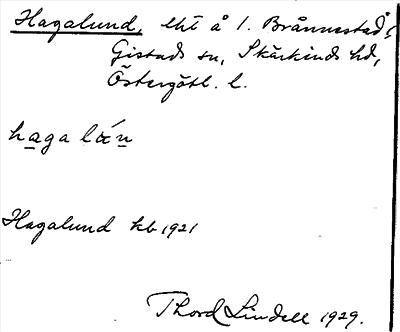 Hagalund, lht å 1. Brånnestad,
Gistads sn, Skärkinds hd,
Östergötl. l.
haga lán
Hagalund kb 1921
Thord Lindell 1929.